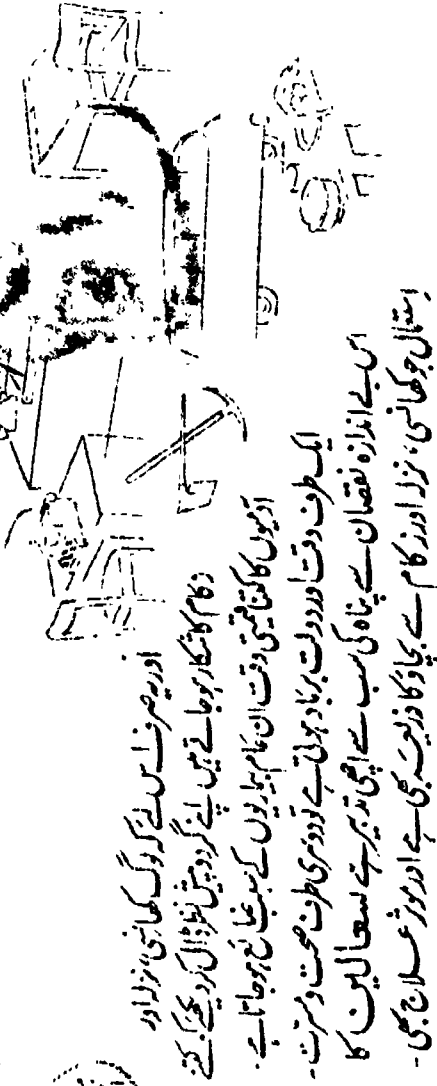 اور یہ صرف اس لئے کہ لوگ کھانسی، نزلہ اور
زکام کا شکار ہو جاتے ہیں اپنے گرد و پیش نظر ڈال کر دیکھئے کہ کتنے
آدمیوں کا کتنا قیمتی وقت ان عام بیماریوں کے سبب ضائع ہو جاتا ہے۔
ایک طرف وقت اور دولت برباد ہوتی ہے تو دوسری طرف صحت و مسرت۔
اس بے اندازہ نقصان سے پناہ کی سب سے اچھی تدبیر ہے سعالین کا
استعمال جو کھانسی، نزلہ اور زکام سے بچاؤ کا ذریعہ بھی ہے اور موثر علاج بھی۔